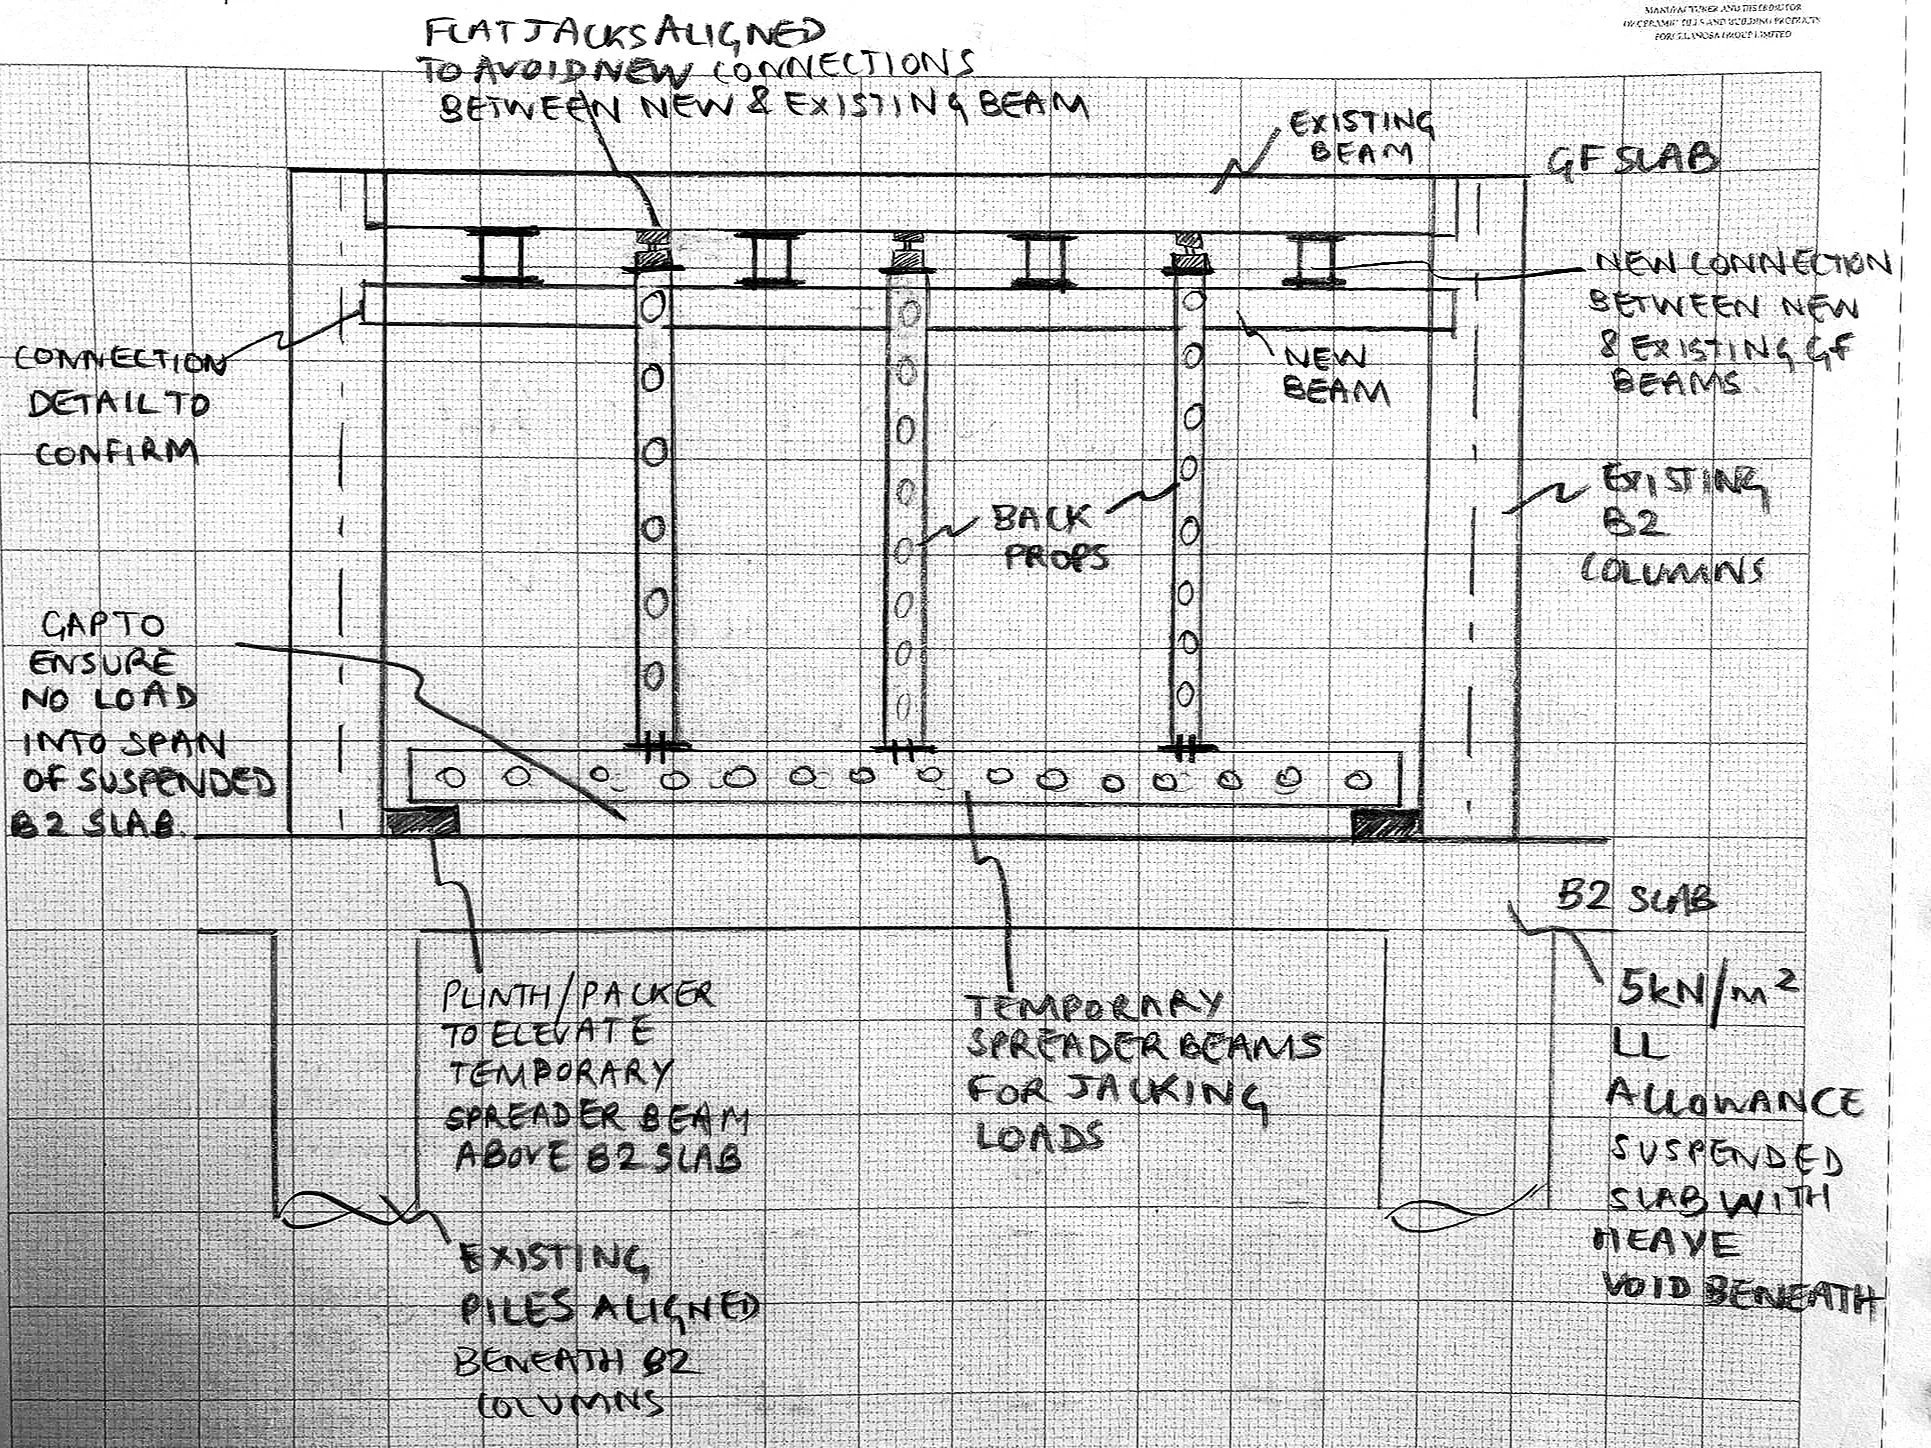 MANUFACTURER AND DISTRIBUTOR
FLAT JACKS ALIGNED
TO AVOID NEW CONNECTIONS
BETWEEN NEW & EXISTING BEAM
EXISTING
BEAM
GF SLAB
NEW CONNECTION
BETWEEN NEW
& EXISTING GF
BEAMS
CONNECTION
DETAIL TO
CONFIRM
NEW
BEAM
EXISTING
B2
COLUMNS
BACK
PROPS
GAP TO
ENSURE
NO LOAD
INTO SPAN
OF SUSPENDED
B2 SLAB.
B2 SLAB
5kN/m²
LL
ALLOWANCE
SUSPENDED
SLAB WITH
HEAVE
VOID BENEATH
PLINTH/PACKER
TO ELEVATE
TEMPORARY
SPREADER BEAM
ABOVE B2 SLAB
TEMPORARY
SPREADER BEAMS
FOR JACKING
LOADS
EXISTING
PILES ALIGNED
BENEATH B2
COLUMNS